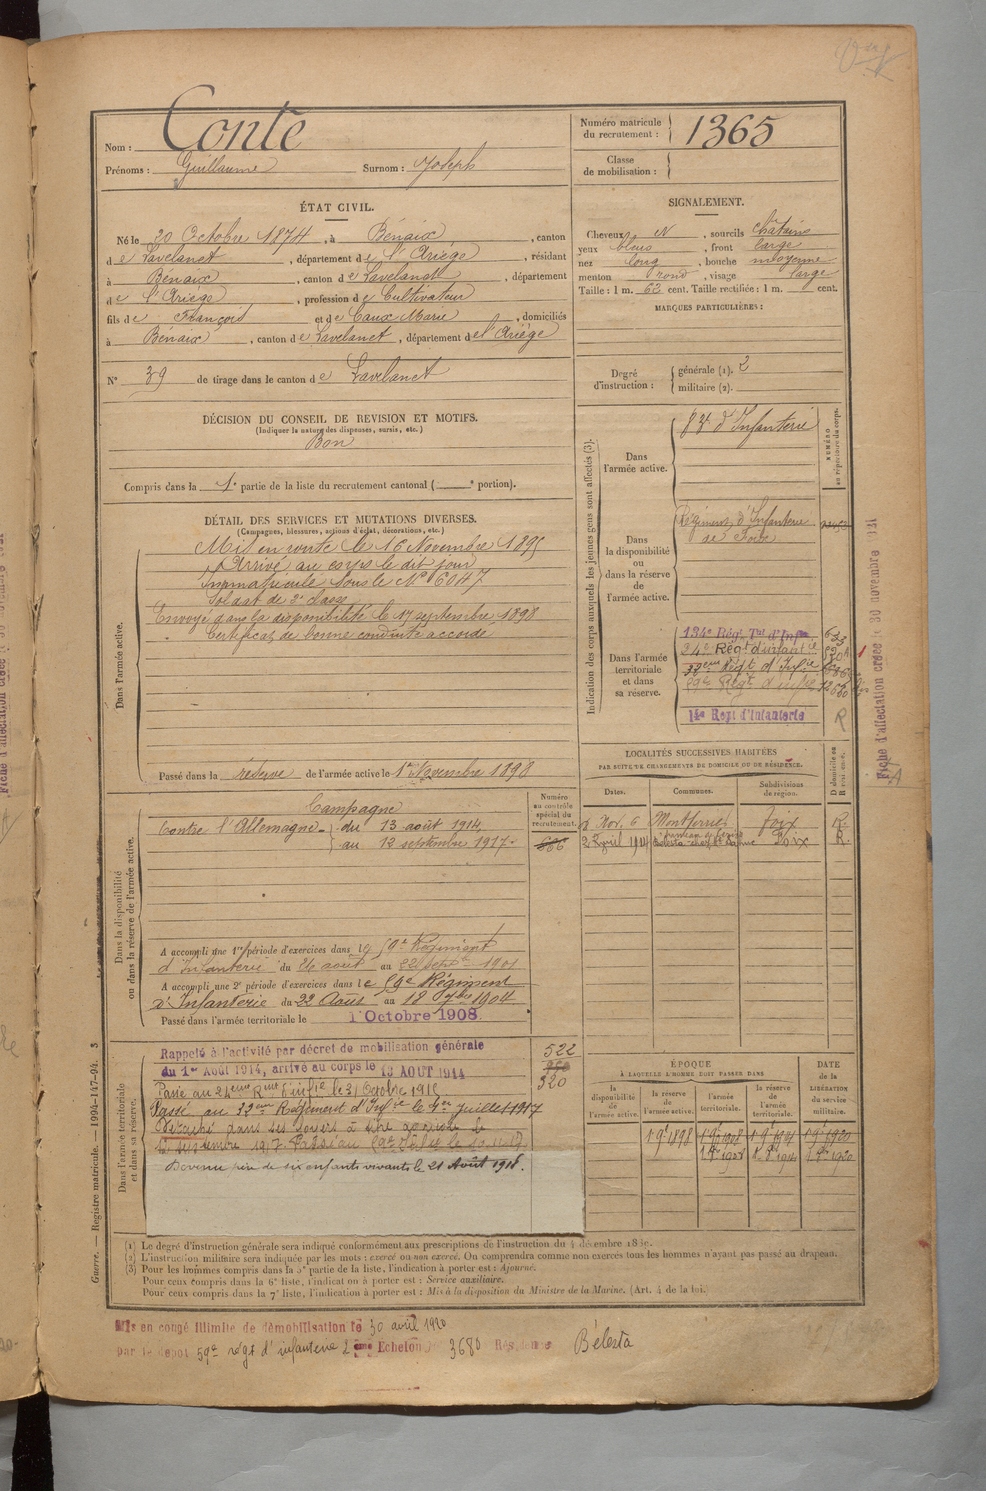 Nom : Conte
Prénoms : Guillaume Surnom : Joseph
Numéro matricule du recrutement : 1365
Classe de mobilisation :
ÉTAT CIVIL.
Né le 30 Octobre 1874, à Bénaix, canton
de Lavelanet, département de l'Ariège, résidant
à Bénaix, canton de Lavelanet, département
de l'Ariège, profession de Cultivateur
fils de François et de Caux Marie, domiciliés
à Bénaix, canton de Lavelanet, département de l'Ariège
N° 39 de tirage dans le canton de Lavelanet
SIGNALEMENT.
Cheveux N, sourcils châtains
yeux bleus, front large
nez long, bouche moyenne
menton rond, visage large
Taille : 1 m. 62 cent. Taille rectifiée : 1 m. cent.
MARQUES PARTICULIÈRES :
Degré d'instruction : générale (1). 2
militaire (2).
DÉCISION DU CONSEIL DE REVISION ET MOTIFS.
(Indiquer la nature des dispenses, sursis, etc.)
Bon
Compris dans la 1e partie de la liste du recrutement cantonal ( e portion).
DÉTAIL DES SERVICES ET MUTATIONS DIVERSES.
(Campagnes, blessures, actions d'éclat, décorations, etc.)
Dans l'armée active.
Mis en route le 16 Novembre 1895
Arrivé au corps le dit jour
Immatriculé sous le No 6047
Soldat de 2e classe
Envoyé dans la disponibilité le 17 septembre 1898
Certificat de bonne conduite accordé
Passé dans la réserve de l'armée active le 1er Novembre 1898
Indication des corps auxquels les jeunes gens sont affectés (3).
NUMÉRO au répertoire du corps.
Dans l'armée active.
d'Infanterie
Dans la disponibilité ou dans la réserve de l'armée active.
Régiment d'Infanterie
de Foix
Dans l'armée territoriale et dans sa réserve.
134e Régt Tal d'Infie
24e Régt d'infantie
32eme Régt d'Infie
59e Régt d'infie
14e Regt d'Infanterie
R
LOCALITÉS SUCCESSIVES HABITÉES
PAR SUITE DE CHANGEMENTS DE DOMICILE OU DE RÉSIDENCE.
Dates. Communes. Subdivisions de région. D domicile ou R résidence.
Nov. 6 Montferrier Foix R
2 Avril 1914 Bélesta Foix R.
Dans la disponibilité ou dans la réserve de l'armée active.
Numéro au contrôle spécial du recrutement.
Campagne
Contre l'Allemagne - du 13 août 1914,
au 12 septembre 1917.
A accompli une 1re période d'exercices dans le 59e Régiment
d'Infanterie du 26 août au 22 septbre 1901
A accompli une 2e période d'exercices dans le 59e Régiment
d'Infanterie du 22 Août au 18 7bre 1904
Passé dans l'armée territoriale le 1 Octobre 1908.
Dans l'armée territoriale et dans sa réserve.
522
320
Rappelé à l'activité par décret de mobilisation générale
du 1er AOUT 1914, arrivé au corps le 13 AOUT 1914
Passé au 24eme Rmt d'infie le 31 Octobre 1916
Passé au 32eme Régiment d'Infie le 4er Juillet 1917
Détaché dans ses foyers à titre agricole le
12 septembre 1917 Passé au
Devenu père de six enfants vivants le 21 Août 1918.
ÉPOQUE
À LAQUELLE L'HOMME DOIT PASSER DANS
la disponibilité de l'armée active. la réserve de l'armée active. l'armée territoriale. la réserve de l'armée territoriale.
DATE de la LIBÉRATION du service militaire.
(1) Le degré d'instruction générale sera indiqué conformément aux prescriptions de l'instruction du 4 décembre 1889.
(2) L'instruction militaire sera indiquée par les mots : exercé ou non exercé. On comprendra comme non exercés tous les hommes n'ayant pas passé au drapeau.
(3) Pour les hommes compris dans la 5e partie de la liste, l'indication à porter est : Ajourné.
Pour ceux compris dans la 6e liste, l'indication à porter est : Service auxiliaire.
Pour ceux compris dans la 7e liste, l'indication à porter est : Mis à la disposition du Ministre de la Marine. (Art. 4 de la loi.
Mis en congé illimité de démobilisation le 30 avril 1920
par le dépôt 59e régt d'infanterie 2eme Echelon 3680 Résidence Bélesta
Guerre. — Registre matricule. — 1994-147-94. 3
Fiche d'affectation créée le 30 novembre 1921